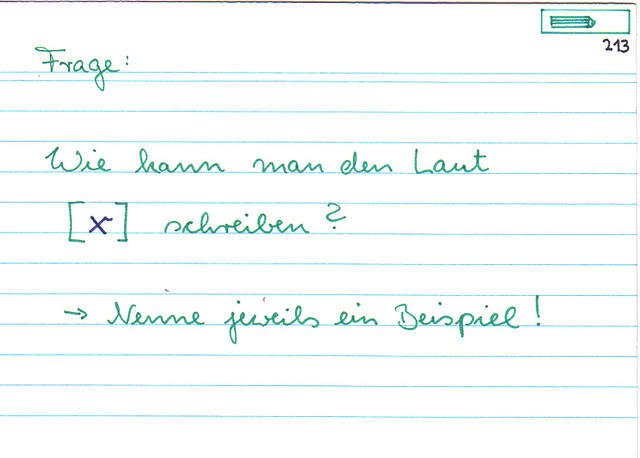 213
Frage:
Wie kann man den Laut
[x] schreiben?
→ Nenne jeweils ein Beispiel!